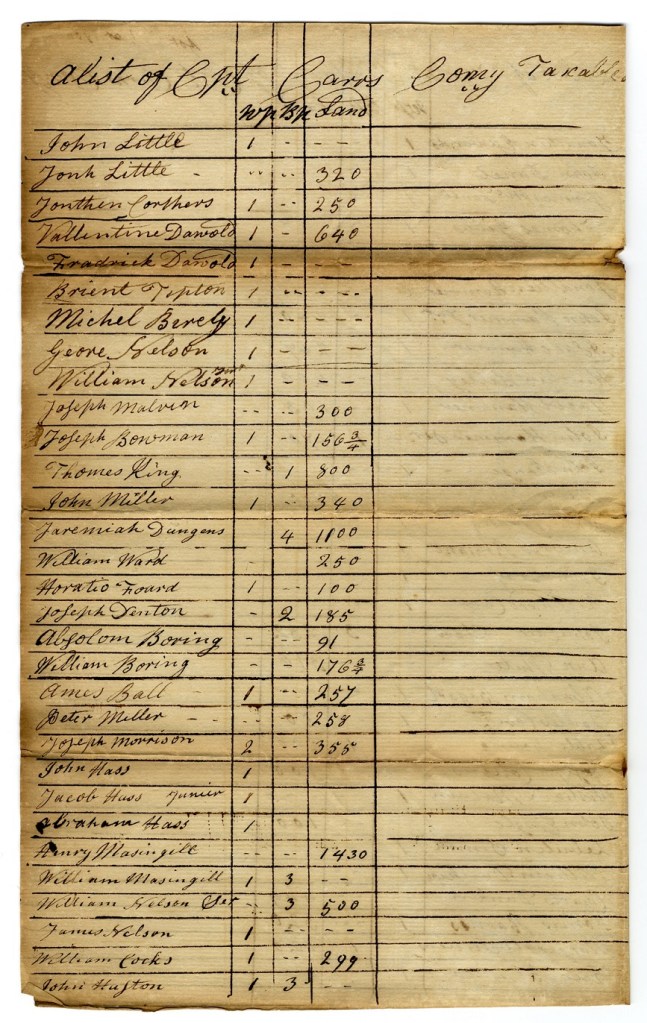 a list of Cpt Carrs Comy Taxables
wp Bp Land
John Little 1 - - -
Jonh Little - -- -- 320
Jonthen Corthers 1 -- 250
Vallentine Dawold 1 - 640
Fradrick Dawold 1 - - -
Brient Tipton 1 -- - - -
Michel Berely 1 -- - - -
Geore Nelson 1 - - - -
William Nelson Jur 1 - - -
Joseph Malvin -- -- 300
Joseph Bowman 1 -- 156 3/4
Thomes King -- 1 800
John Miller 1 -- 340
Jaremiah Dungens 4 1100
William Ward - 250
Horatio Foard 1 - 100
Joseph Denton - 2 185
Absolom Boring - - 91
William Boring - - 176 3/4
Ames Ball 1 -- 257
Peter Miller -- -- 258
Joseph Morrison 2 -- 355
John Hass 1
Jacob Hass Junier 1
Abraham Hass 1
Henry Masingill -- -- 1430
William Masingill 1 3 --
William Nelson Ser -- 3 500
James Nelson 1 -- --
William Cocks -- -- 299
John Huston 1 3 --